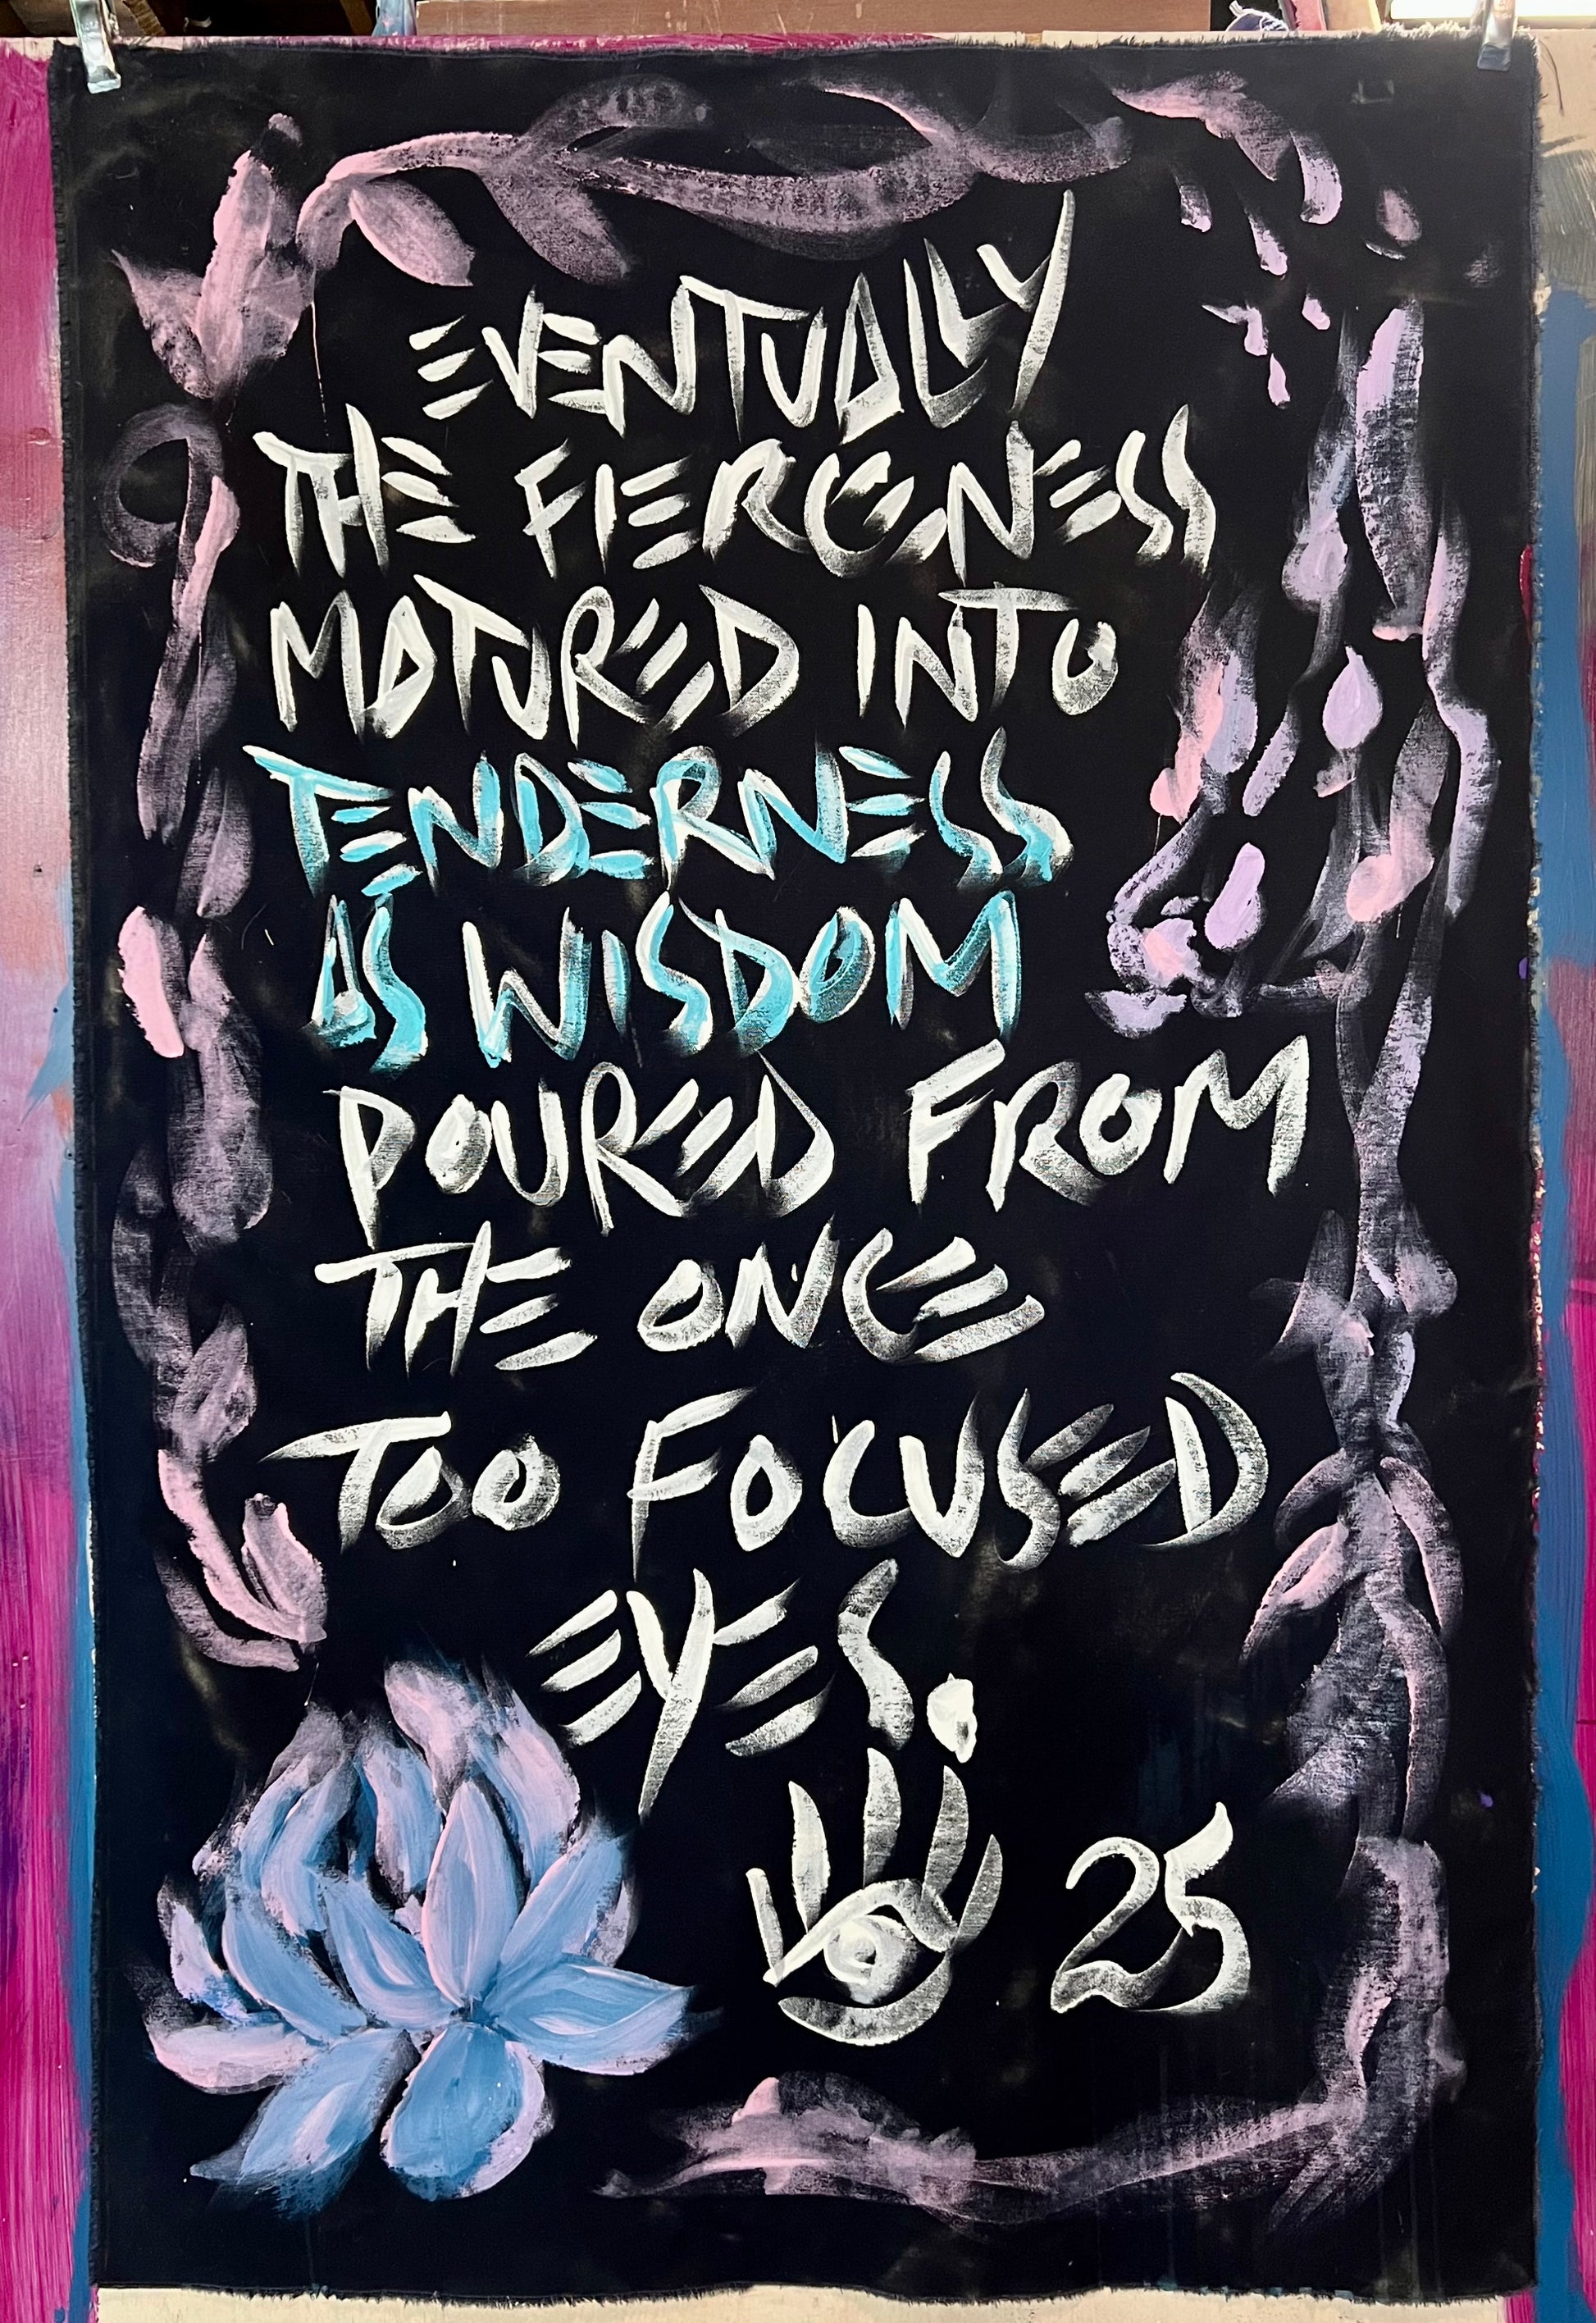 EVENTUALLY
THE FIERCENESS
MATURED INTO
TENDERNESS
AS WISDOM
POURED FROM
THE ONCE
TOO FOCUSED
EYES.
25